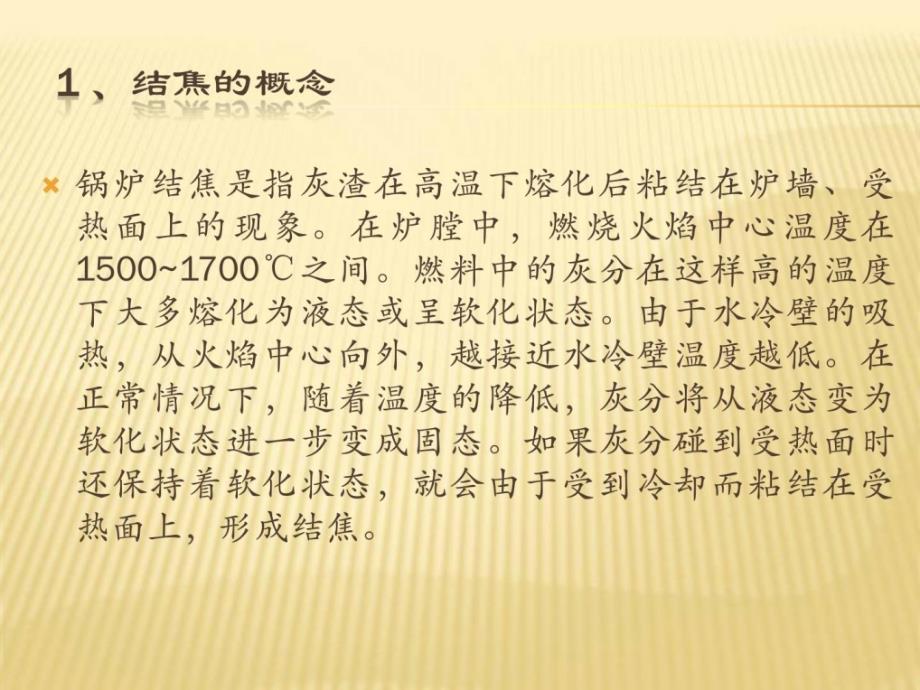 1、结焦的概念
锅炉结焦是指灰渣在高温下熔化后粘结在炉墙、受
热面上的现象。在炉膛中，燃烧火焰中心温度在
1500~1700℃之间。燃料中的灰分在这样高的温度
下大多熔化为液态或呈软化状态。由于水冷壁的吸
热，从火焰中心向外，越接近水冷壁温度越低。在
正常情况下，随着温度的降低，灰分将从液态变为
软化状态进一步变成固态。如果灰分碰到受热面时
还保持着软化状态，就会由于受到冷却而粘结在受
热面上，形成结焦。